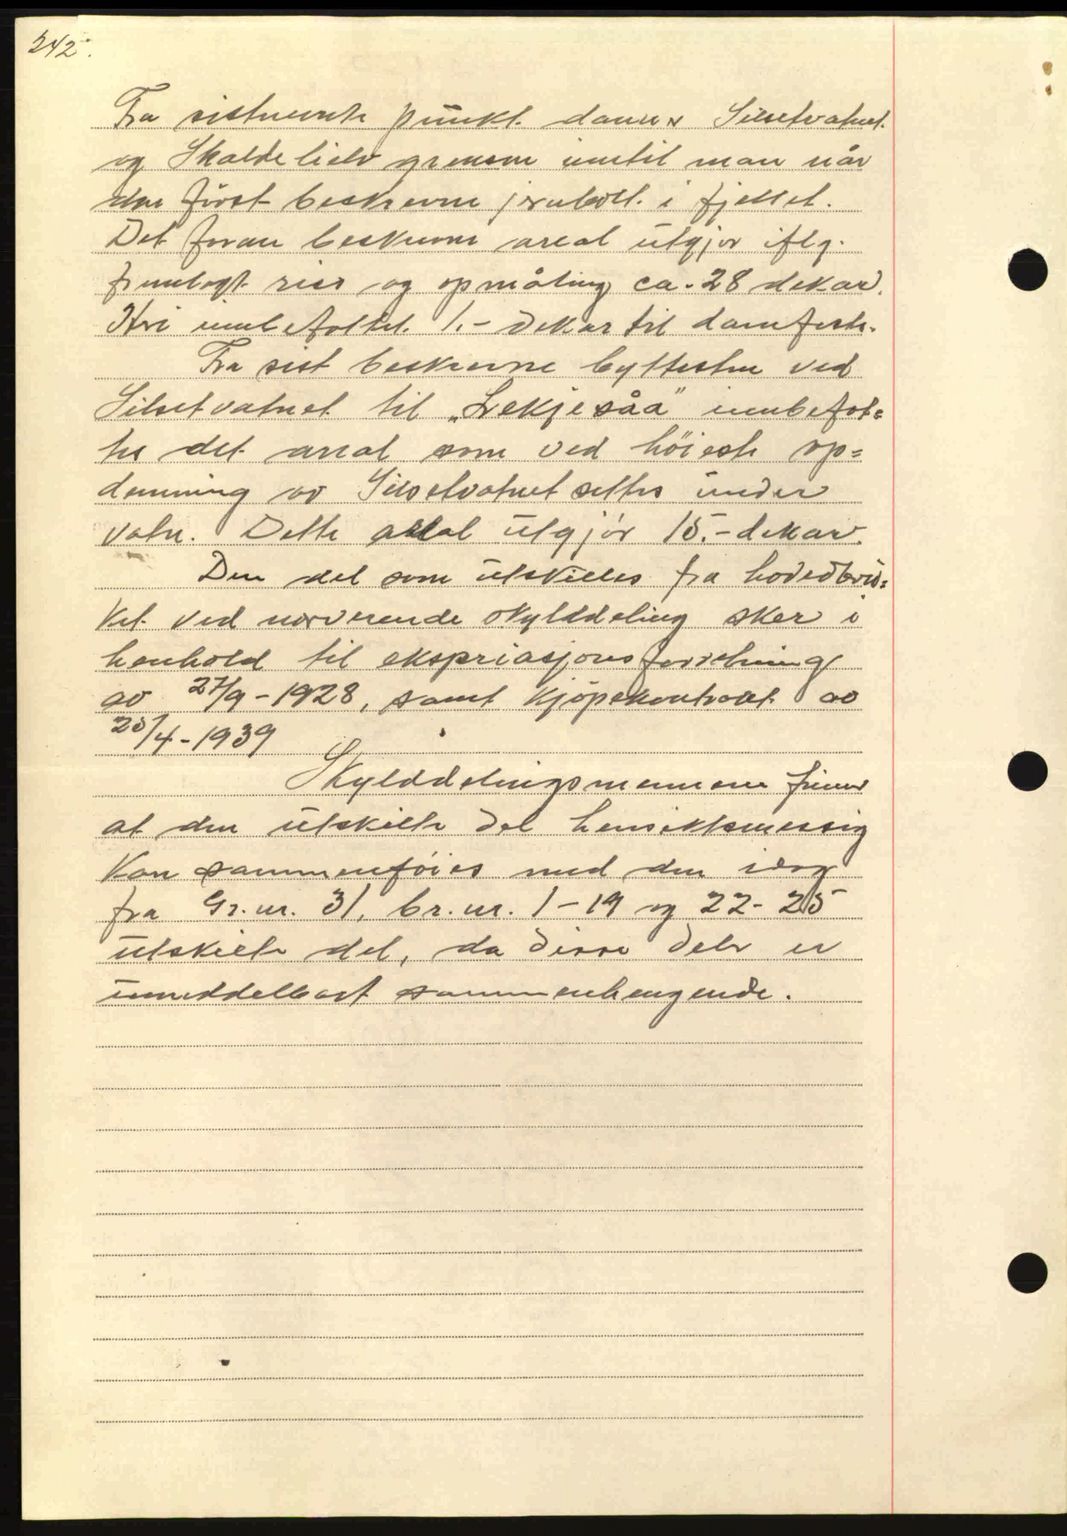 242.
Fra sistnevnte punkt danner Silsetvatnet
og Skaldelielv grensen inntil man når
den först beskrevne jernbolt i fjellet.
Det foran beskrevne areal utgjör iflg.
fremlagt riss og opmåling ca. 28 dekar.
Heri innbefattet 1.- dekar til damfeste.
Fra sist beskrevne byttesten ved
Silsetvatnet til „Lekjesåa" innbefat=
tes det areal som ved höieste op=
demning av Silsetvatnet settes under
vatn. Dette areal utgjör 15.- dekar.
Den del som utskilles fra hovedbru=
ket ved nærverende skylddeling sker i
henhold til ekspriasjonsforretning
av 27/9-1928, samt kjöpekontrakt av
25/4-1939
Skylddelingsmennene finner
at den utskilte del hensiktsmessig
kan sammenföies med den idag
fra Gr.nr. 31, br.nr. 1-19 og 22-25
utskilte del, da disse deler er
umiddelbart sammenhengende.